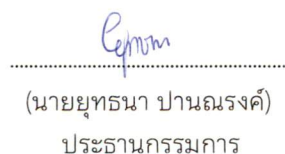 (นายยุทธนา ปานณรงค์)
ประธานกรรมการ